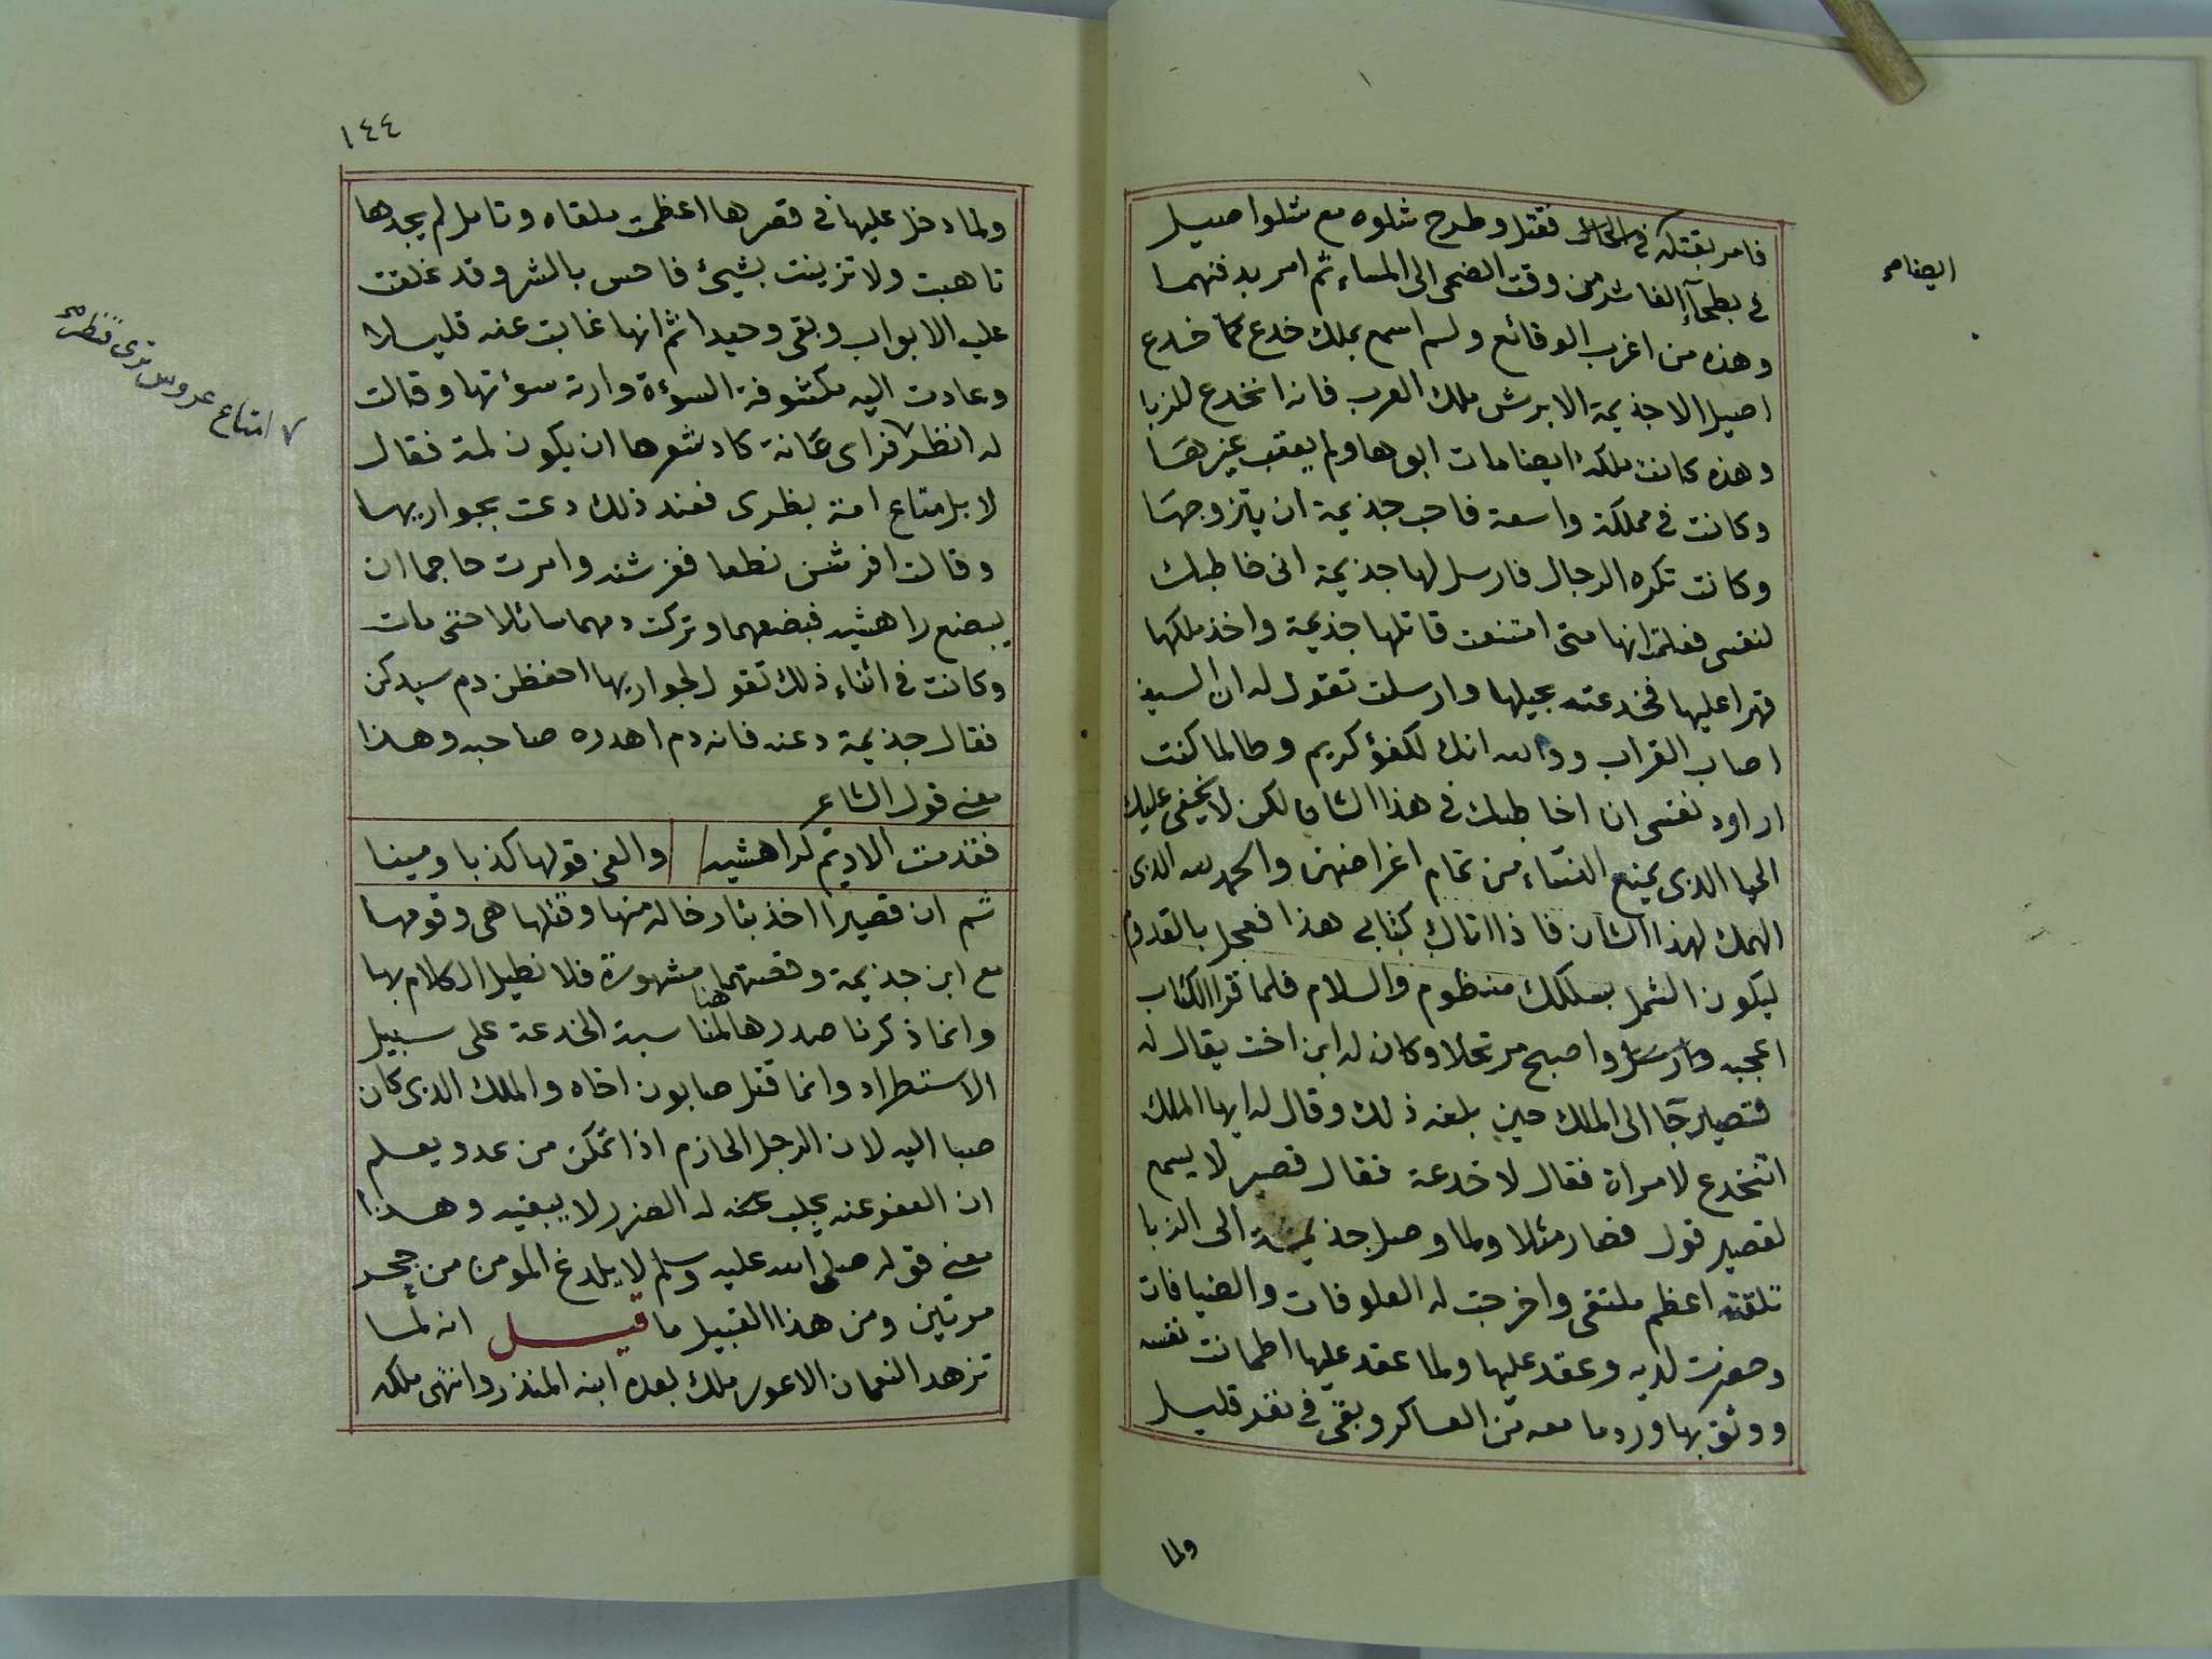 فامر بقتله في الحال فقتل وطرح شلوه مع شلوا صيل
في بطحآء الفاشر من وقت الضحى الى المساء ثم امر بدفنهما
ايضا صح
وهذه من اغرب الوقائع ولم اسمع بملك خدع كما خدع
اصيل الا جذيمة الابرش ملك العرب فانه انخدع للزبا
وهذه كانت ملكة ايضا مات ابوها ولم يعقب غيرها
وكانت في مملكة واسعة فاحب جذيمة ان يتزوجها
وكانت تكره الرجال فارسل لها جذيمة انى خاطبك
لنفسى فعلمت انها متى امتنعت قاتلها جذيمة واخذ ملكها
قهرا عليها فخدعته بحيلها وارسلت تقول له ان السيف
اصاب القراب ووالله انك لكفؤ كريم وطالما كنت
اراود نفسى ان اخاطبك في هذا الشان لكن لا يخفى عليك
الحيا الذى يمنع النساء من تمام اغراضهن والحمد لله الذى
الهمك لهذا الشان فاذا اتاك كتابى هذا فعجل بالقدوم
ليكون الشمل بسلكك منظوم والسلام فلما قرا الكتاب
اعجبه وارسل واصبح مرتحلا وكان له ابن اخت يقال له
قصير جآ الى الملك حين بلغه ذلك وقال له ايها الملك
اتنخدع لامراة فقال لا خدعة فقال قصير لا يسمع
لقصير قول فصار مثلا ولما وصل جذيمة الى الزبا
تلقته اعظم ملتقى واخرجت له العلوفات والضيافات
وحضرت لديه وعقد عليها ولما عقد عليها اطمانت نفسه
ووثق بها ورد ما معه من العساكر وبقى في نفر قليل
ولما
١٤٤
ولما دخل عليها في قصرها اعظمت ملقاه وتامل لم يجدها
تاهبت ولا تزينت بشيئ فاحس بالشر وقد غلقت
عليه الابواب وبقى وحيدا ثم انها غابت عنه قليلا
وعادت اليه مكشوفة السؤة وارته سؤتها وقالت
له انظر ٧ فراى عانة كاد شعرها ان يكون لمة فقال
٧ امتاع عروس ترى فنظر صح
لا بل متاع امة بظرى فعند ذلك دعت بجواريها
وقالت افرشن نطعا ففرشنه وامرت حاجما ان
يبضع راهشيه فبضعهما وتركت دمهما سائلا حتى مات
وكانت في اثناء ذلك تقول لجواريها احفظن دم سيدكن
فقال جذيمة دعنه فانه دم اهدره صاحبه وهذا
معنى قول الشاعر
فقدمت الاديم لراهشيه والفى قولها كذبا ومينا
ثم ان قصيرا اخذ بثار خاله منها وقتلها هى وقومها
مع ابن جذيمة وقصتهما مشهورة فلا نطيل الكلام بها
وانما ذكرنا صدرها هنا لمناسبة الخدعة على سبيل
الاستطراد وانما قتل صابون اخاه والملك الذى كان
صبا اليه لان الرجل الحازم اذا تمكن من عدو يعلم
ان العفو عنه يجلب عنه له الضرر لا يبقيه وهذا
معنى قوله صلى الله عليه وسلم لا يلدغ المومن من جحر
مرتين ومن هذا القبيل ما قيل انه لما
تزهد النعمان الاعور ملك بعده ابنه المنذر وانتهى ملكه